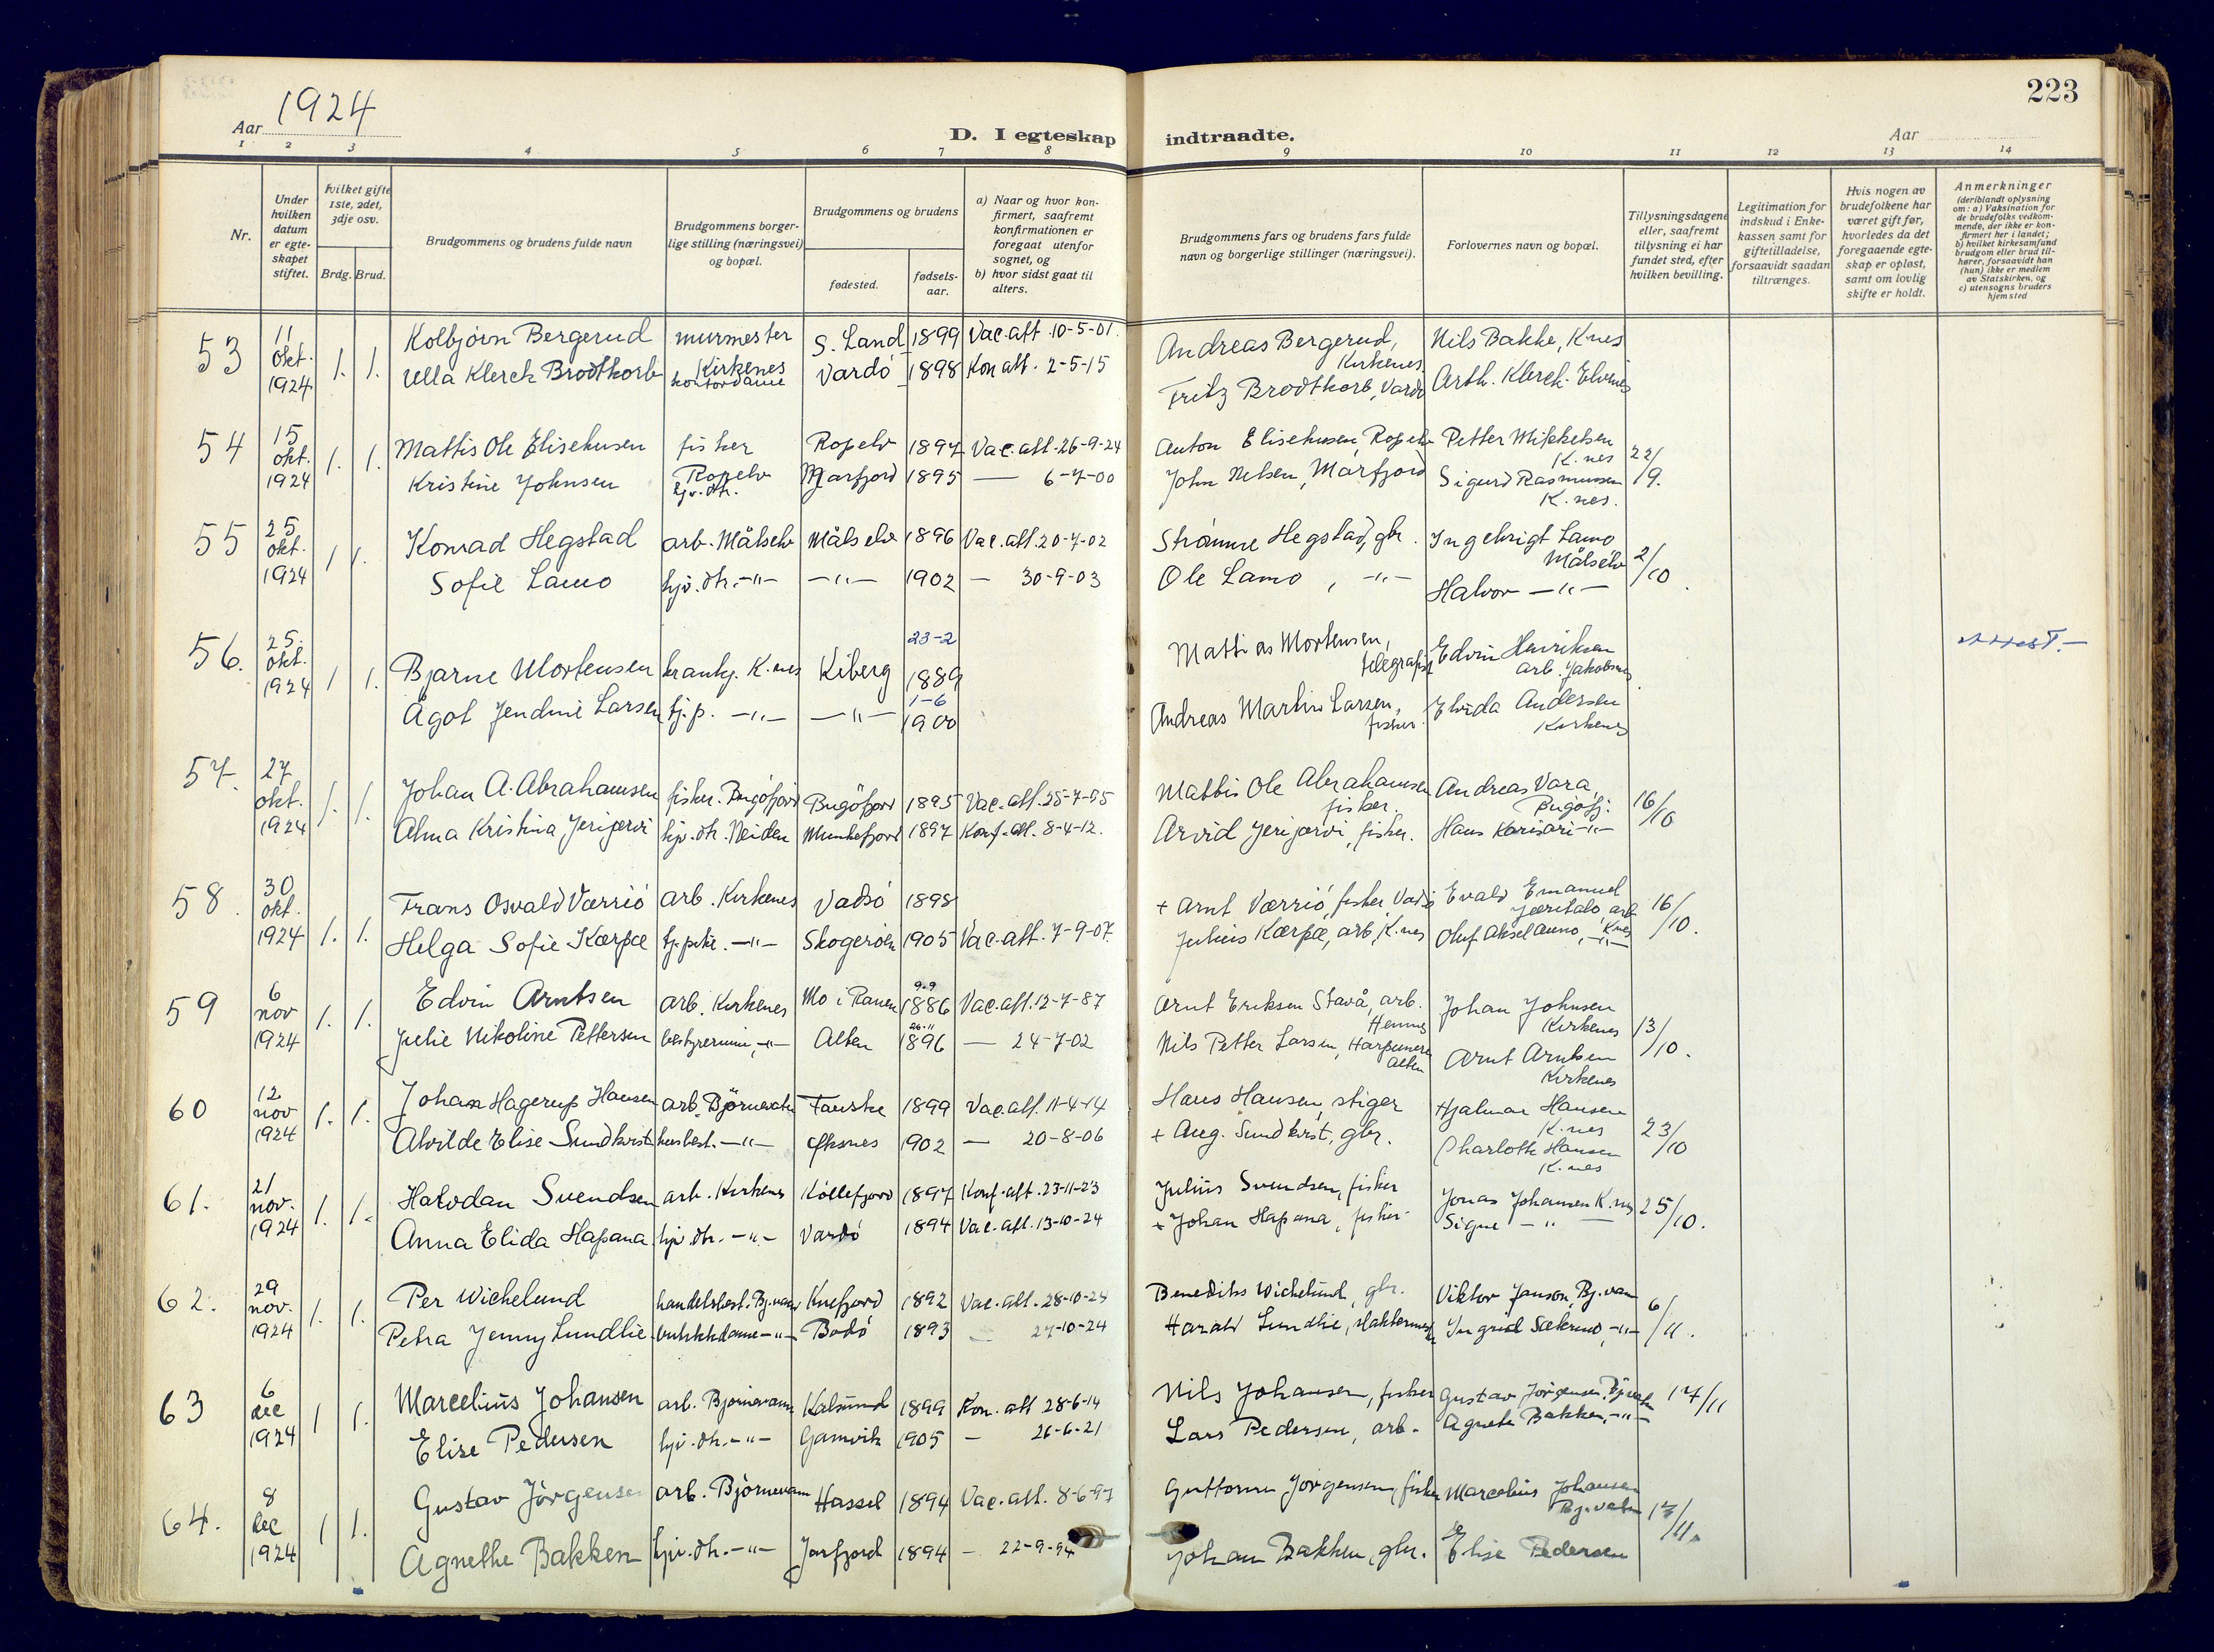 223
Aar 1924
D. I egteskap indtraadte.
Aar
1 2 3 4 5 6 7 8 9 10 11 12 13 14
Nr.
Under hvilken datum er egteskapet stiftet.
hvilket gifte 1ste, 2det, 3dje osv.
Brdg. Brud.
Brudgommens og brudens fulde navn
Brudgommens borgerlige stilling (næringsvei) og bopæl.
Brudgommens og brudens
fødested.
fødselsaar.
a) Naar og hvor konfirmert, saafremt konfirmationen er foregaat utenfor sognet, og
b) hvor sidst gaat til alters.
Brudgommens fars og brudens fars fulde navn og borgerlige stillinger (næringsvei).
Forlovernes navn og bopæl.
Tillysningsdagene eller, saafremt tillysning ei har fundet sted, efter hvilken bevilling.
Legitimation for indskud i Enkekassen samt for giftetilladelse, forsaavidt saadan tiltrænges.
Hvis nogen av brudefolkene har været gift før, hvorledes da det foregaaende egteskap er opløst, samt om lovlig skifte er holdt.
Anmerkninger (deriblandt oplysning om: a) Vaksination for de brudefolks vedkommende, der ikke er konfirmert her i landet; b) hvilket kirkesamfand brudgom eller brud tilhører, forsaavidt han (hun) ikke er medlem av Statskirken, og c) utensogns bruders hjemsted
53 11 okt. 1924 1. 1. Kolbjörn Bergerud murmester Kirkenes S. Land 1899 Vac. att. 10-5-01. Andreas Bergerud, Kirkenes Nils Bakke, K.nes
Ulla Klerck Brodtkorb kontordame Vardö 1898 Kon att. 2-5-15 Fritz Brodtkorb, Vardö Arth. Klerck. Elvenes
54 15 okt. 1924 1. 1. Mattis Ole Elisehusen fisker Ropelv Ropelv 1897 Vac. att. 26-9-24 Anton Elisehusen, Ropelv Petter Mikkelsen K.nes 22/9.
Kristine Johnsen hjv. dtr. Jarfjord 1895 — 6-7-00 John Nilsen, Jarfjord Sigurd Rasmussen K.nes.
55 25 okt. 1924 1 1. Konrad Hegstad arb. Målselv Målselv 1896 Vac. att. 20-7-02 Strömme Hegstad, gbr. Ingebrigt Lamo Målselv 2/10.
Sofie Lamo hjv. dtr. -"- -"- 1902 — 30-9-03 Ole Lamo, -"- Halvor -"-
56. 25. okt. 1924 1 1. Bjarne Mortensen krankj. K.nes Kiberg 23-2 1889 Mattias Mortensen, telegrafist Edvin Henriksen arb. Jakobsnes.
Ågot Jendine Larsen tj.p. -"- -"- 1-6 1900 Andreas Martin Larsen, fisker Elvida Andersen Kirkenes
attest.-
57. 27 okt. 1924 1. 1. Johan A. Abrahamsen fisker. Bugöfjord Bugöfjord 1895 Vac. att. 25-7-95 Mattis Ole Abrahamsen fisker. Andreas Vara, Bugöfj. 16/10
Alma Kristina Jerijærvi hjv. dtr. Neiden Munkefjord 1897 Konf. att. 8-4-12. Arvid Jerijærvi, fisker. Hans Karisari -"-
58. 30 okt. 1924 1. 1. Frans Osvald Værriö arb. Kirkenes Vadsö 1898 + Arnt Værriö, fisker, Vadsö Evald Emanuel Jæritalo, arb. K.nes 16/10.
Helga Sofie Kærpæ tj.pike. -"- Skogeröen 1905 Vac. att. 7-9-07. Julius Kærpæ, arb, K.nes Oluf Aksel Auno, -"-
59 6 nov 1924 1. 1. Edvin Arntsen arb. Kirkenes Mo i Ranen 9.9 1886 Vac. att. 12-7-87 Arnt Eriksen Stavå, arb. Hemnes Johan Johnsen Kirkenes 13/10.
Julie Nikoline Pettersen bestyrerinne, -"- Alten 26.11 1896 — 24-7-02 Nils Petter Larsen, Harpunerer Alten Arnt Arntsen Kirkenes
60 12 nov 1924 1. 1. Johan Hagerup Hansen arb. Björnevatn Fauske 1899 Vac. att. 11-4-14 Hans Hansen, stiger Hjalmar Hansen K.nes 23/10
Alvilde Elise Sundkvist husbest. -"- Øksnes 1902 — 20-8-06 + Aug. Sundkvist, gbr. Charlotte Hansen K.nes
61. 21 nov. 1924 1. 1. Halvdan Svendsen arb. Kirkenes Köllefjord 1897 Konf. att. 23-11-23 Julius Svendsen, fisker Jonas Johansen K.nes 25/10.
Anna Elida Hapana hjv. dtr. -"- Vardö 1894 Vac. att. 13-10-24 + Johan Hapana, fisker. Signe -"-
62. 29 nov. 1924 1. 1. Per Wichelund handelsbest. Bj.vann Kvefjord 1892 Vac. att. 28-10-24 Benedikts Wichelund, gbr. Viktor Janson, Bj.van 6/11.
Petra Jenny Lundlie butikkdame -"- Bodö 1893 — 27-10-24 Harald Lundlie, slaktermester Ingrid Sæterno, -"-
63 6 dec 1924 1 1. Marcelius Johansen arb. Björnevann Kalsund 1899 Kon. att 28-6-14 Nils Johansen, fisker Gustav Jörgensen. Bj.vatn 17/11
Elise Pedersen hjv. dtr. -"- Gamvik 1905 — 26-6-21 Lars Pedersen, arb. Agnete Bakken, -"-
64. 8 dec 1924 1 1. Gustav Jörgensen arb. Björnevann Hassel 1894 Vac. att. 8-6-97 Guttorm Jörgensen, fisker Marcelius Johansen Bj.vatn 17/11.
Agnethe Bakken hjv. dtr. -"- Jarfjord 1894 — 22-9-94 Johan Bakken, gbr. Elise Pedersen